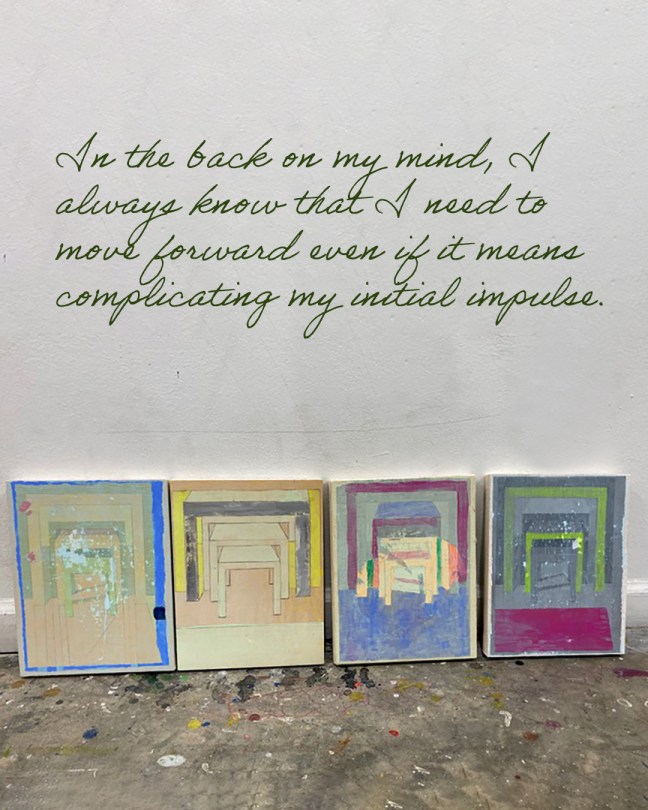 In the back on my mind, I
always know that I need to
move forward even if it means
complicating my initial impulse.